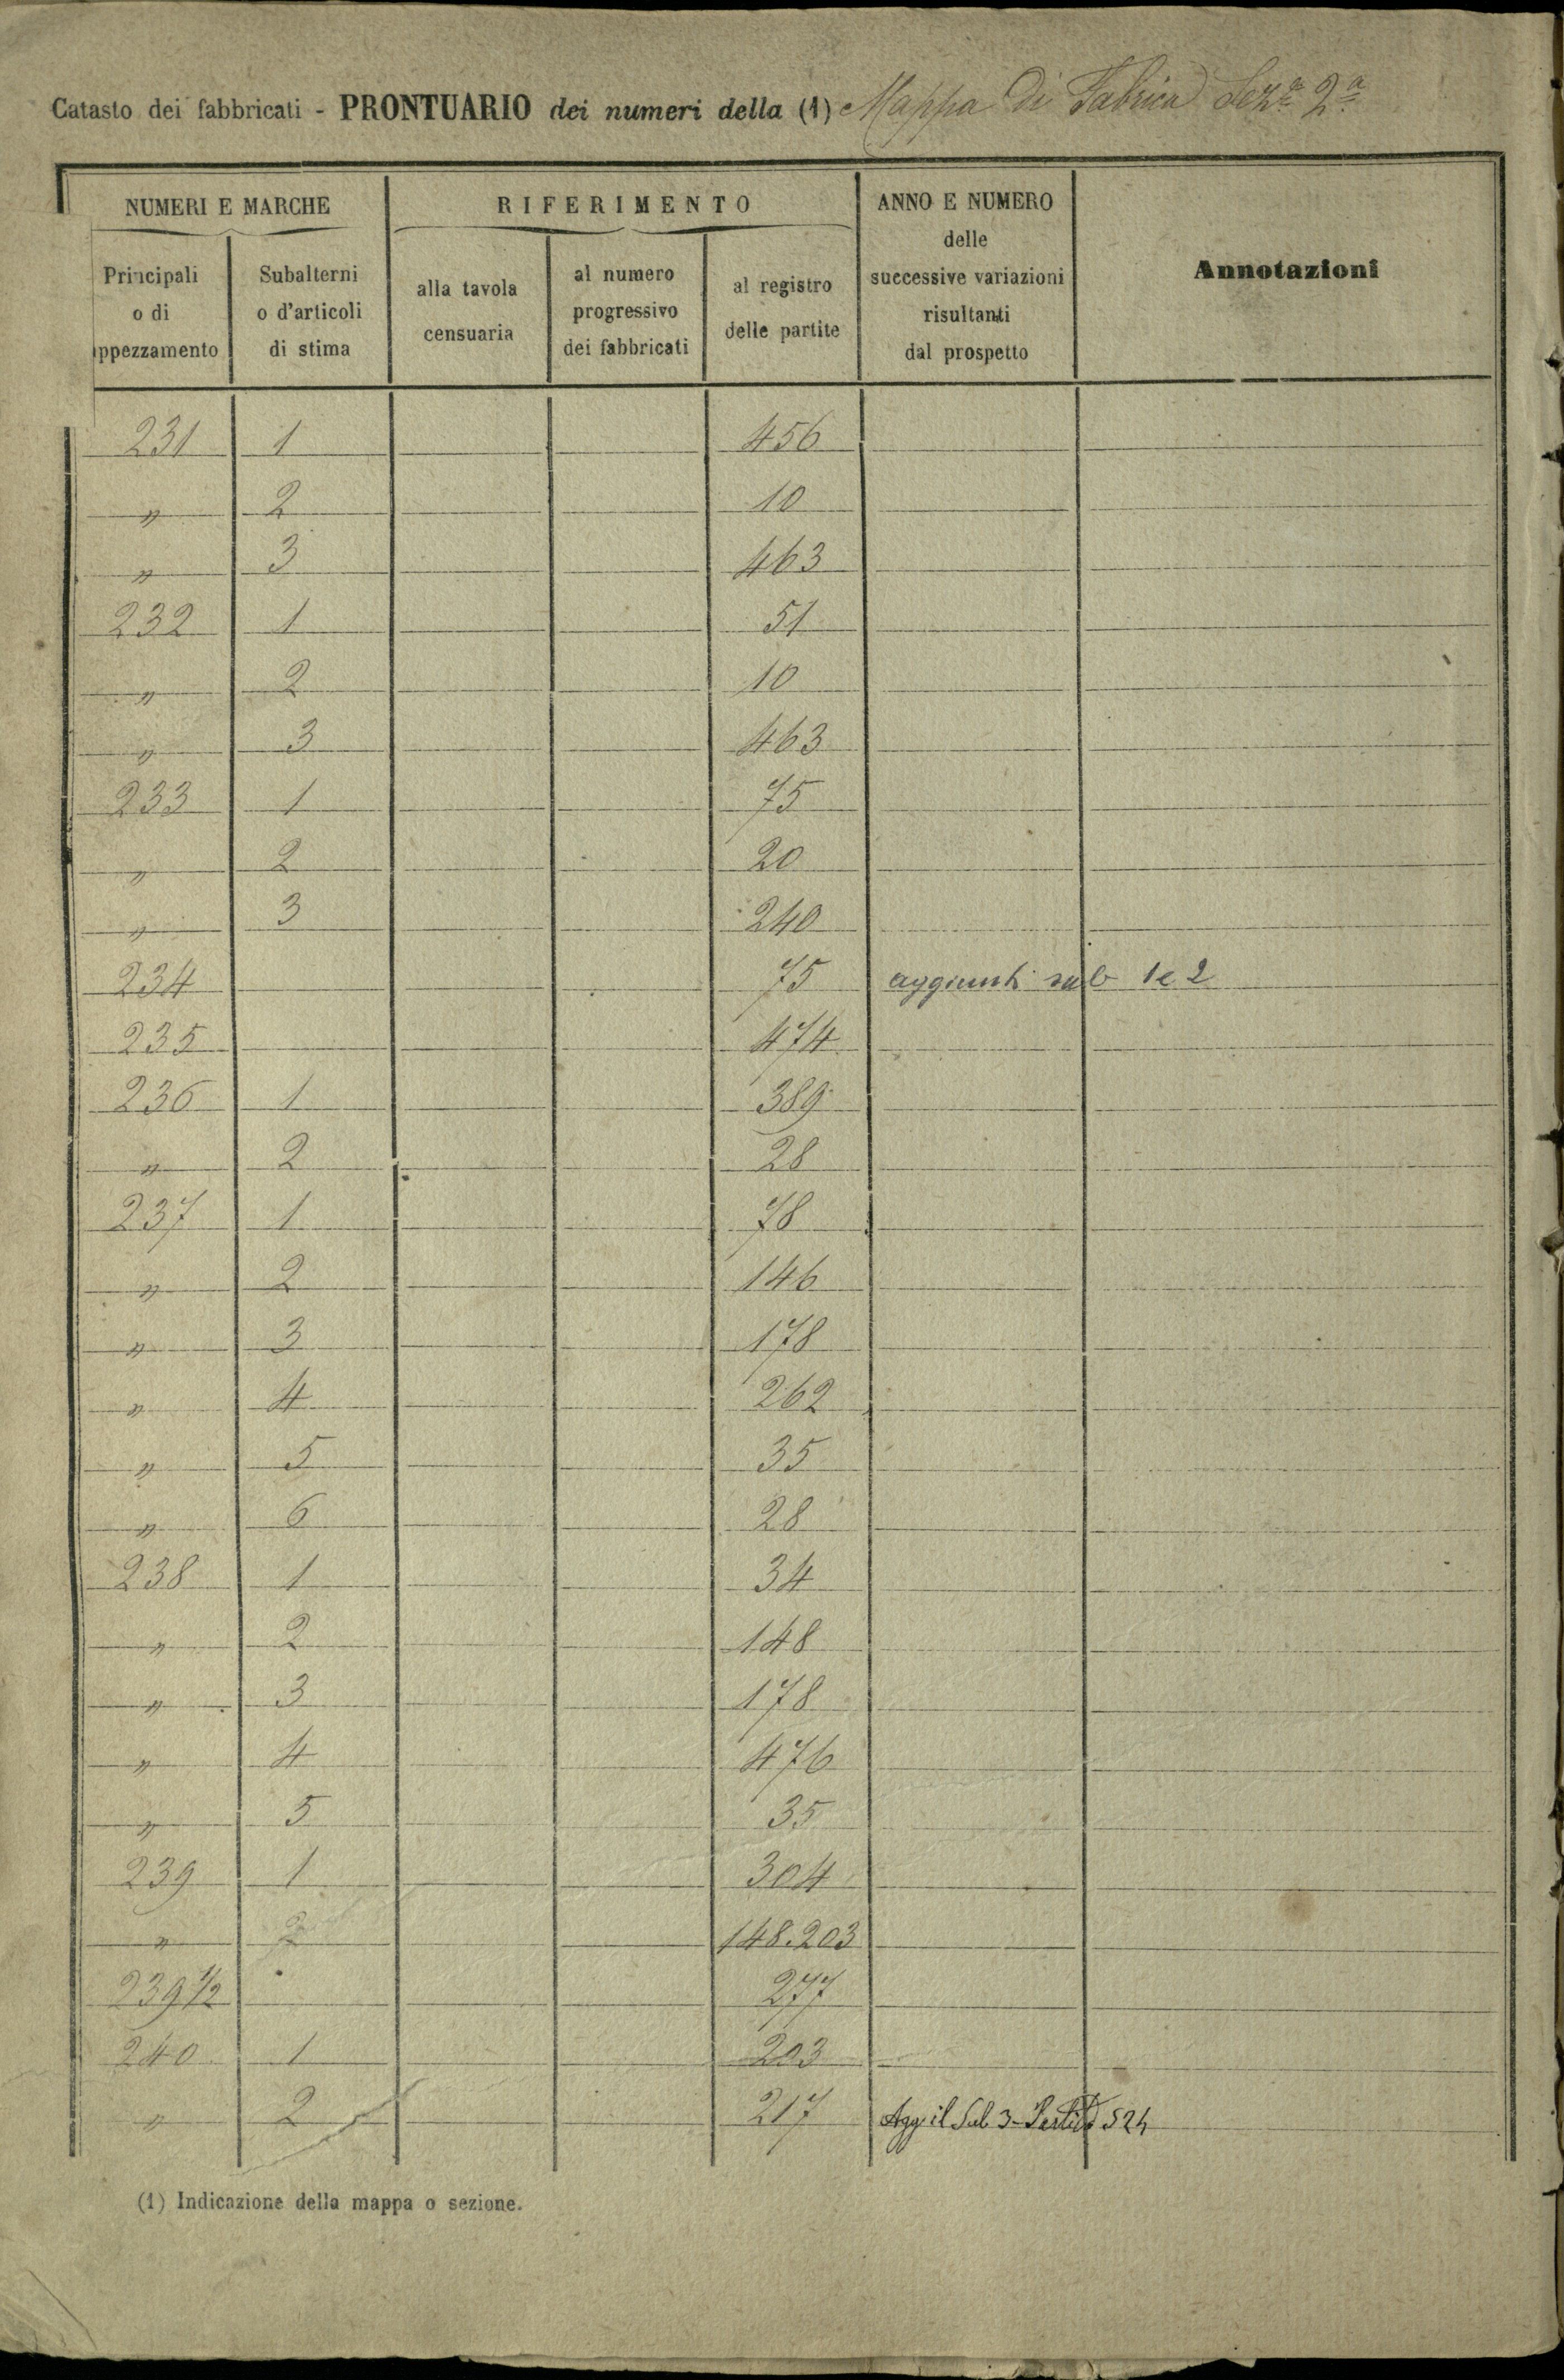 Catasto dei fabbricati - PRONTUARIO dei numeri della (1) Mappa di Fabrica Sez.ª 2.ª
NUMERI E MARCHE
RIFERIMENTO
ANNO E NUMERO
delle
successive variazioni
risultanti
dal prospetto
Annotazioni
Principali
o di
ppezzamento
Subalterni
o d'articoli
di stima
alla tavola
censuaria
al numero
progressivo
dei fabbricati
al registro
delle partite
231 1 456
" 2 10
" 3 463
232 1 51
" 2 10
" 3 463
233 1 75
" 2 20
" 3 240
234 75 aggiunti sub 1 e 2
235 474
236 1 389
" 2 28
237 1 78
" 2 146
" 3 178
" 4 262
" 5 35
" 6 28
238 1 34
" 2 148
" 3 178
" 4 476
" 5 35
239 1 304
" 2 148.203
239 1/2 277
240 1 203
" 2 217 Agg il Sub 3 - Partita 524
(1) Indicazione della mappa o sezione.